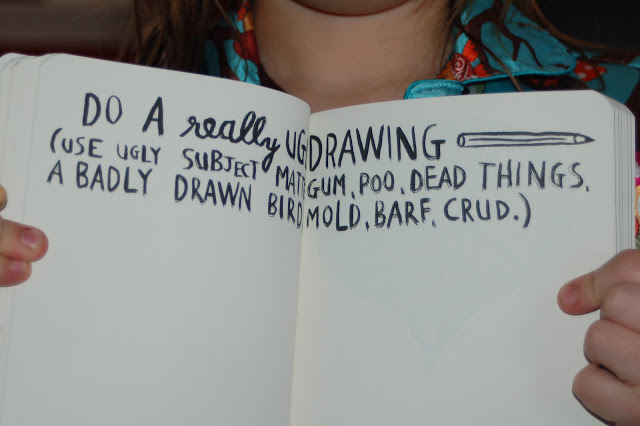 DO A really UG DRAWING
(USE UGLY SUBJECT MAT GUM, POO, DEAD THINGS,
A BADLY DRAWN BIRD MOLD, BARF, CRUD.)